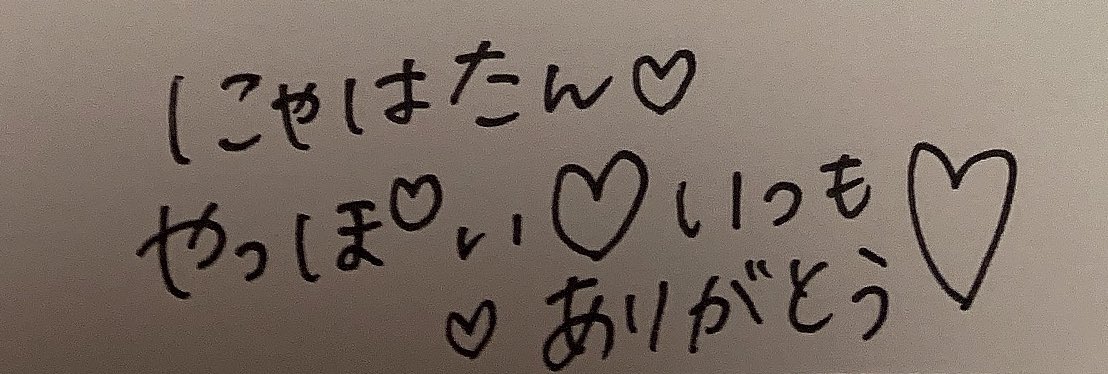 にゃはたん♡
やっほ♡い♡いつも♡
♡ありがとう